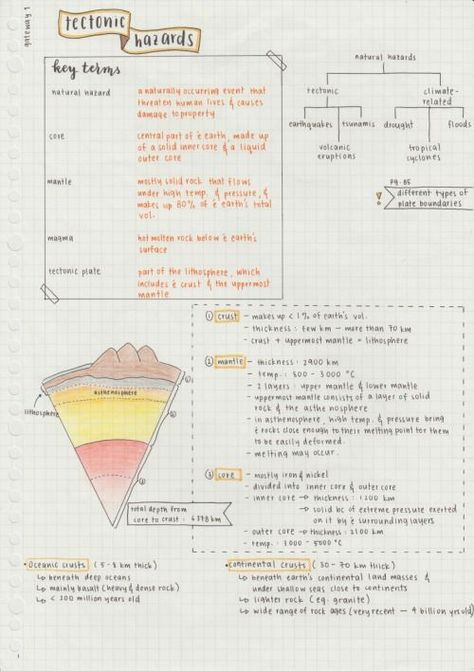 gateway 1
tectonic
hazards
key terms
natural hazard
a naturally occurring event that
threaten human lives & causes
damage to property
core
central part of ě earth, made up
of a solid inner core & a liquid
outer core
mantle
mostly solid rock that flows
under high temp. & pressure, &
makes up 80% of ě earth's total
vol.
magma
hot molten rock below ě earth's
surface
tectonic plate
part of the lithosphere, which
includes ě crust & the uppermost
mantle
natural hazards
tectonic
climate-
related
earthquakes
tsunamis
drought
floods
volcanic
eruptions
tropical
cyclones
pg. 85
! different types of
plate boundaries
① crust - makes up < 1% of earth's vol.
- thickness : few km – more than 70 km
- crust + uppermost mantle = lithosphere
② mantle - thickness : 2900 km
- temp. : 800 - 3000 °C
- 2 layers : upper mantle & lower mantle
- uppermost mantle consists of a layer of solid
rock & the asthenosphere
- in asthenosphere, high temp. & pressure bring
ě rocks close enough to their melting point for them
to be easily deformed.
- melting may occur.
③ core - mostly iron & nickel
- divided into inner core & outer core
- inner core → thickness : 1200 km
→ solid bc of extreme pressure exerted
on it by ě surrounding layers
- outer core → thickness : 2100 km
- temp. : 3000 - 5000 °C
asthenosphere
lithosphere
①
②
③
total depth from
core to crust : 6378 km
• Oceanic crusts (5-8 km thick)
↳ beneath deep oceans
↳ mainly basalt (heavy & dense rock)
↳ < 200 million years old
• continental crusts (30 - 70 km thick)
↳ beneath earth's continental land masses &
under shallow seas close to continents
↳ lighter rock (eg. granite)
↳ wide range of rock ages (very recent – 4 billion yrs old)